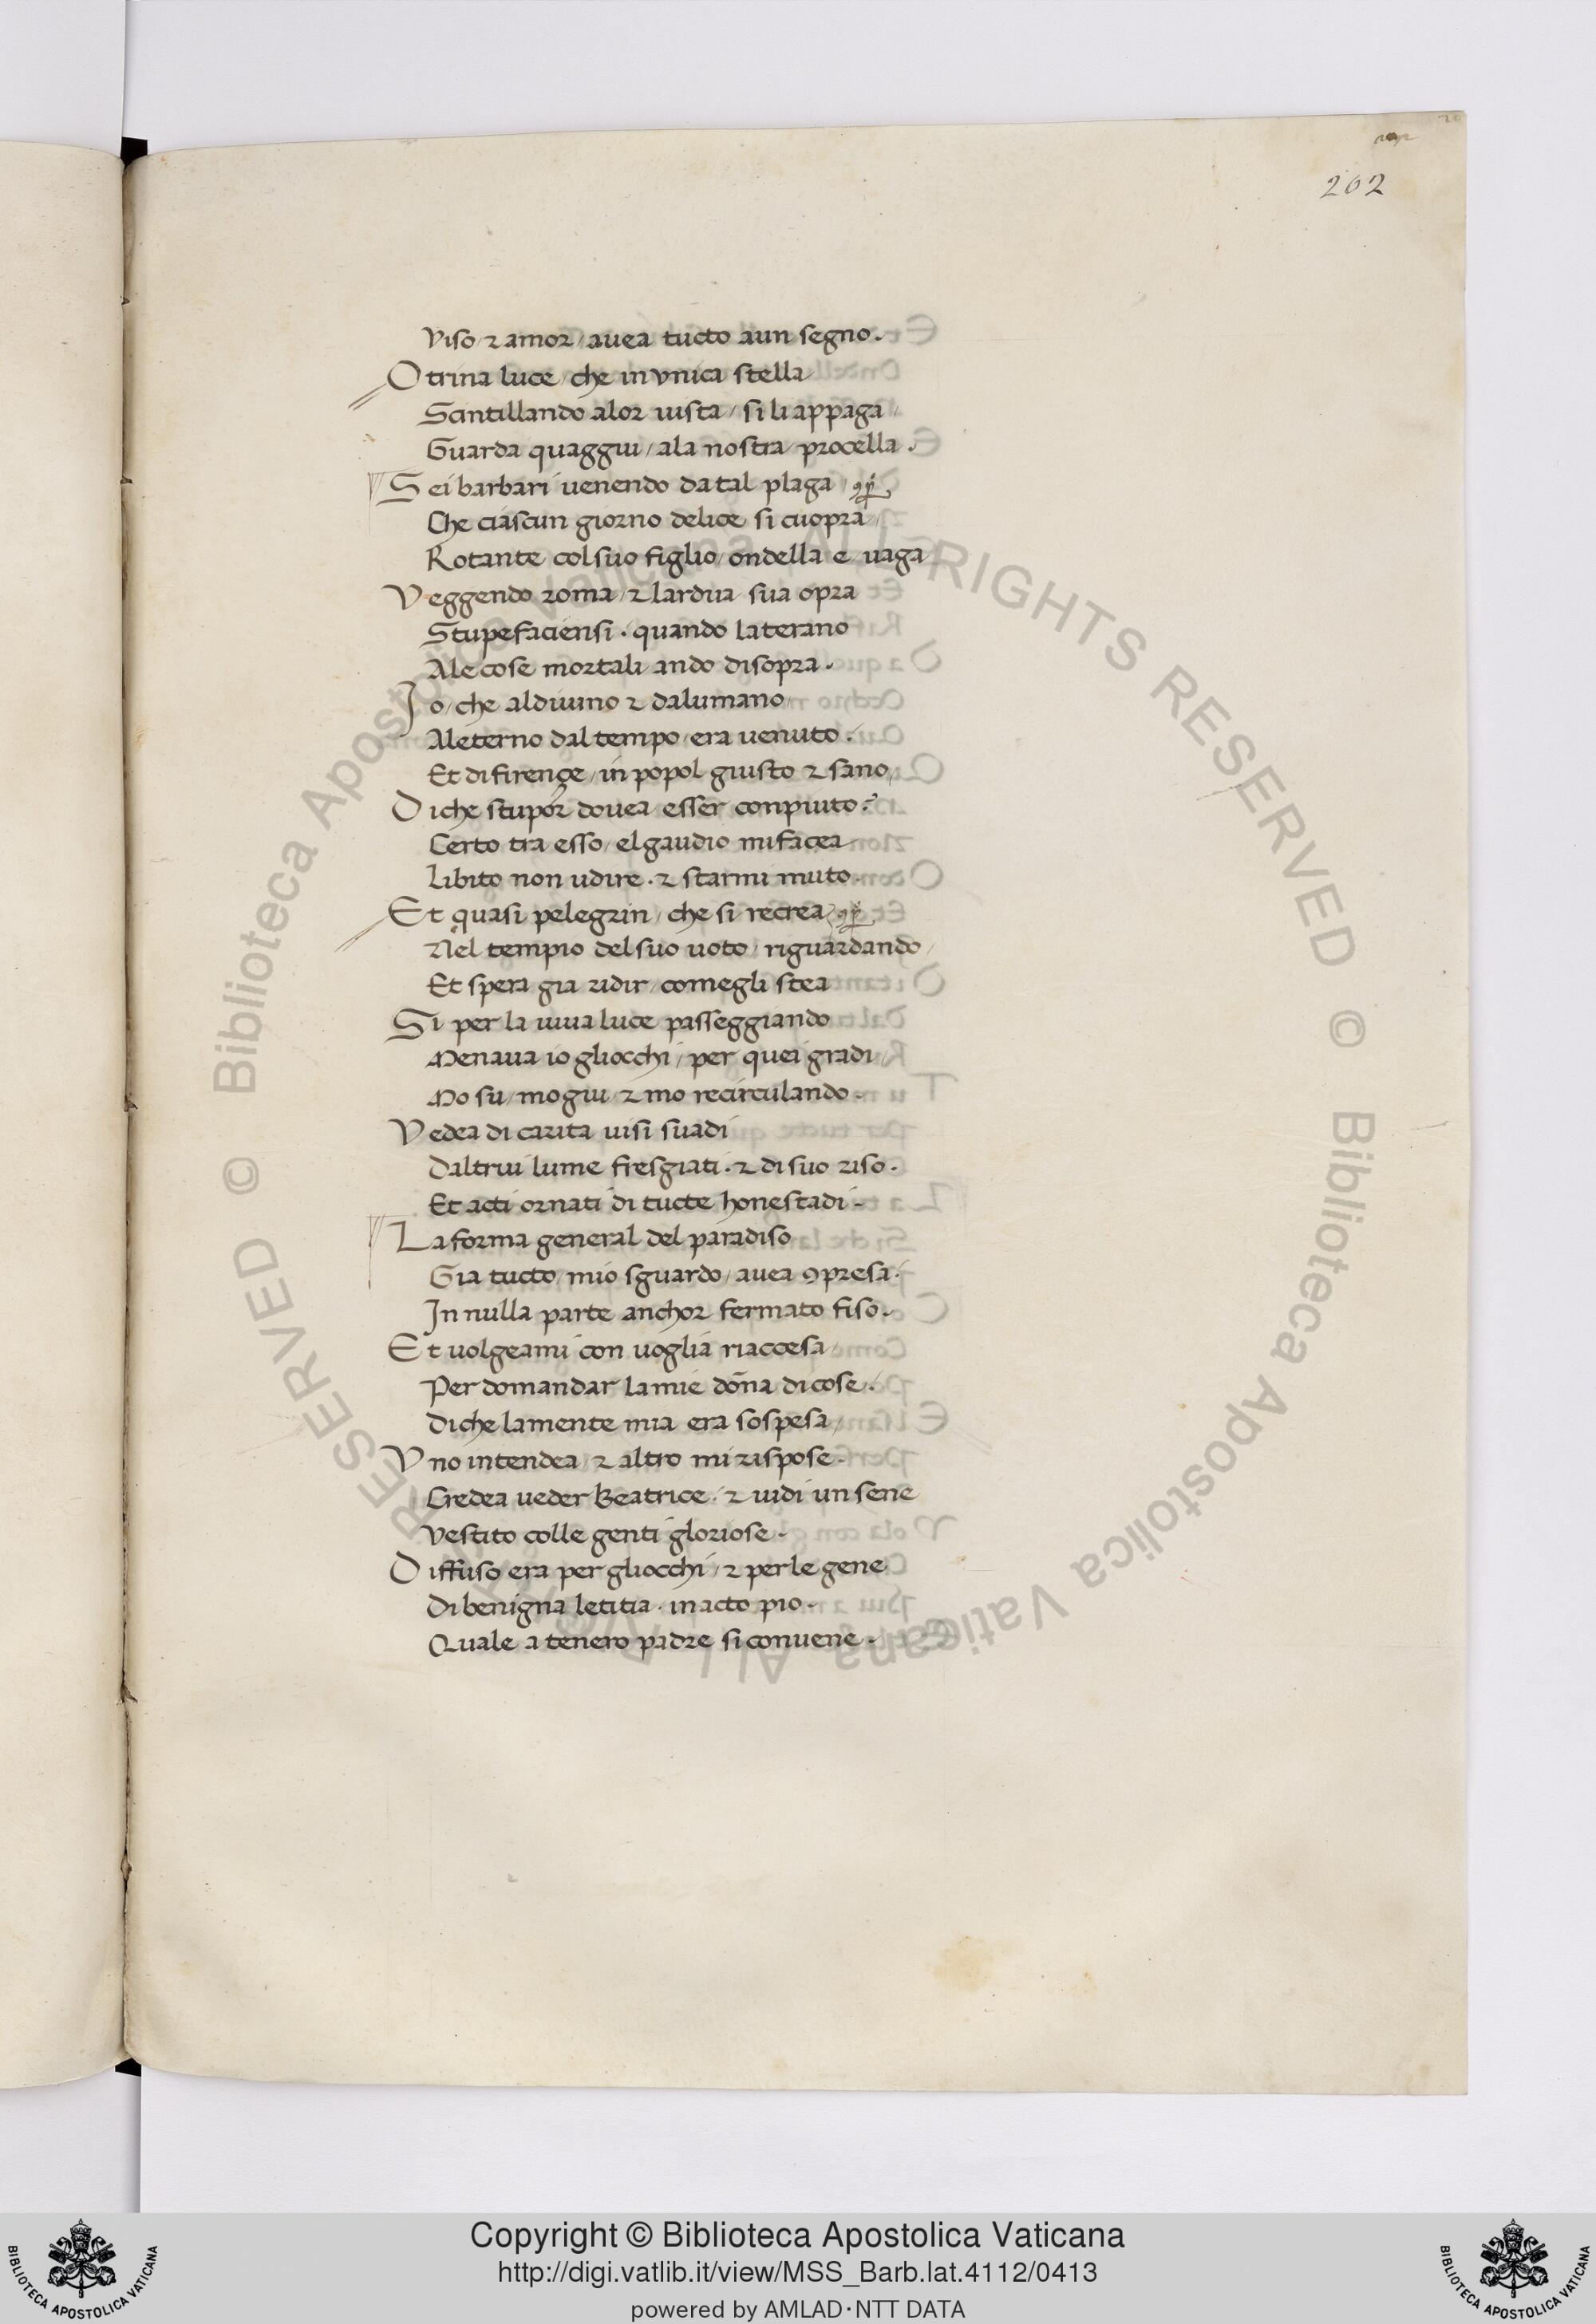 202
Viso / ⁊ amor / avea tucto aun segno .
O trina luce / che in vnica stella
Scintillando alor uista / si li appaga /
Guarda quaggiu / ala nostra procella .
Sei barbari uenendo da tal plaga /
Che ciascun giorno delice si cuopra /
Rotante colsuo figlio / ondella e uaga
Veggendo roma / ⁊ lardua sua opra
Stupefaciensi . quando laterano
Ale cose mortali ando disopra .
Io / che aldiuino ⁊ dalumano /
Aleterno dal tempo / era uenuto .
Et di firençe / in popol giusto ⁊ sano /
Di che stupor douea esser conpiuto .
Certo tra esso / elgaudio mi facea
Libito non udire . ⁊ starmi muto .
Et quasi pelegrin / che si recrea
Nel tempio delsuo uoto / riguardando /
Et spera gia ridir / comegli stea
Si per la uiua luce passeggiando
Menaua io gliocchi / per quei gradi /
Mo su / mo giu / ⁊ mo recirculando .
Vedea di carita uisi suadi
Daltrui lume fresgiati . ⁊ di suo riso .
Et acti ornati di tucte honestadi .
La forma general del paradiso
Gia tucto / mio sguardo / avea ꝯpresa .
In nulla parte anchor fermato fiso .
Et uolgeami con uoglia riaccesa /
Per domandar la mie dōna di cose .
Di che lamente mia era sospesa /
Vno intendea / ⁊ altro mi rispose .
Credea ueder Beatrice . ⁊ uidi un sene
Vestito colle genti gloriose .
Diffuso era per gliocchi / ⁊ per le gene
Di benigna letitia . in acto pio .
Quale a tenero padre si conuene .
© Biblioteca Apostolica Vaticana ALL RIGHTS RESERVED © Biblioteca Apostolica Vaticana ALL RIGHTS RESERVED
Copyright © Biblioteca Apostolica Vaticana
http://digi.vatlib.it/view/MSS_Barb.lat.4112/0413
powered by AMLAD·NTT DATA
BIBLIOTECA APOSTOLICA VATICANA
BIBLIOTECA APOSTOLICA VATICANA